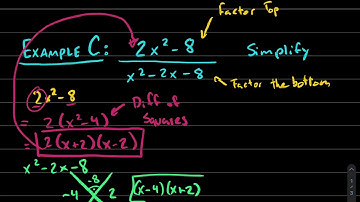 Factor Top
EXAMPLE C: 2x² - 8 / x² - 2x - 8 Simplify
Factor the bottom
2x² - 8
= 2(x² - 4) Diff of Squares
= 2(x+2)(x-2)
x² - 2x - 8
-8
-4 2 (x-4)(x+2)